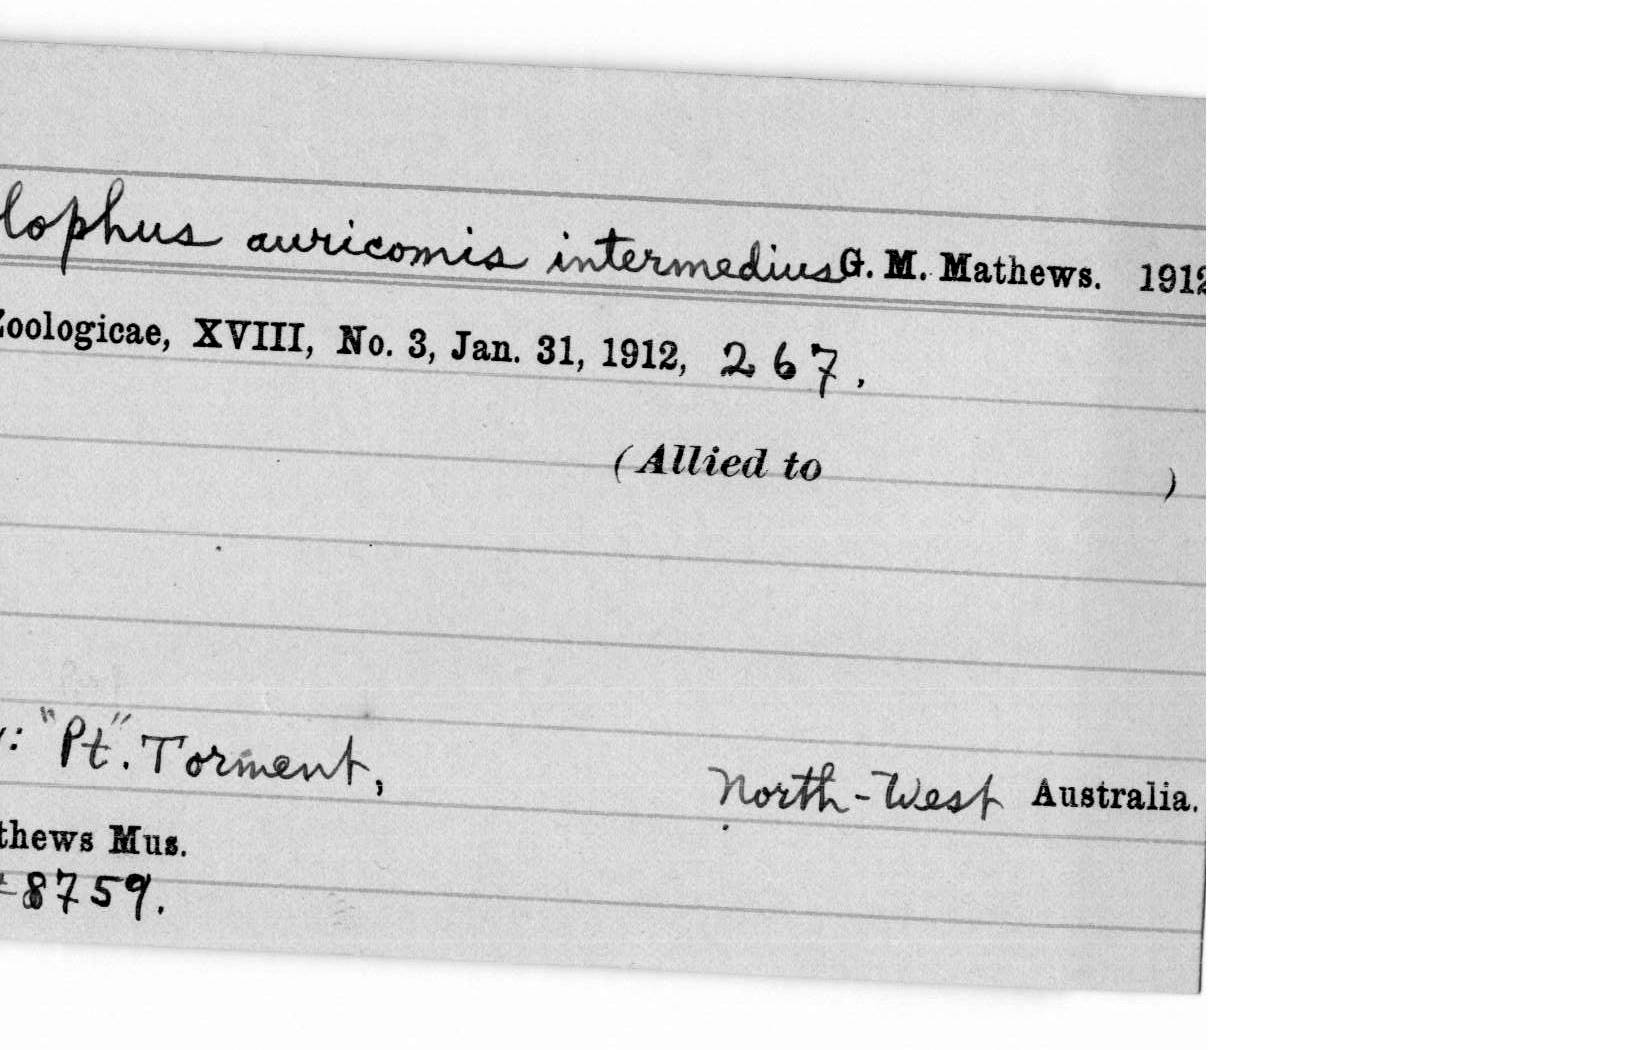 lophus auricomis intermedius G. M. Mathews. 1912
Zoologicae, XVIII, No. 3, Jan. 31, 1912, 267.
(Allied to )
: "Pt". Torment, North-West Australia.
thews Mus.
8759.